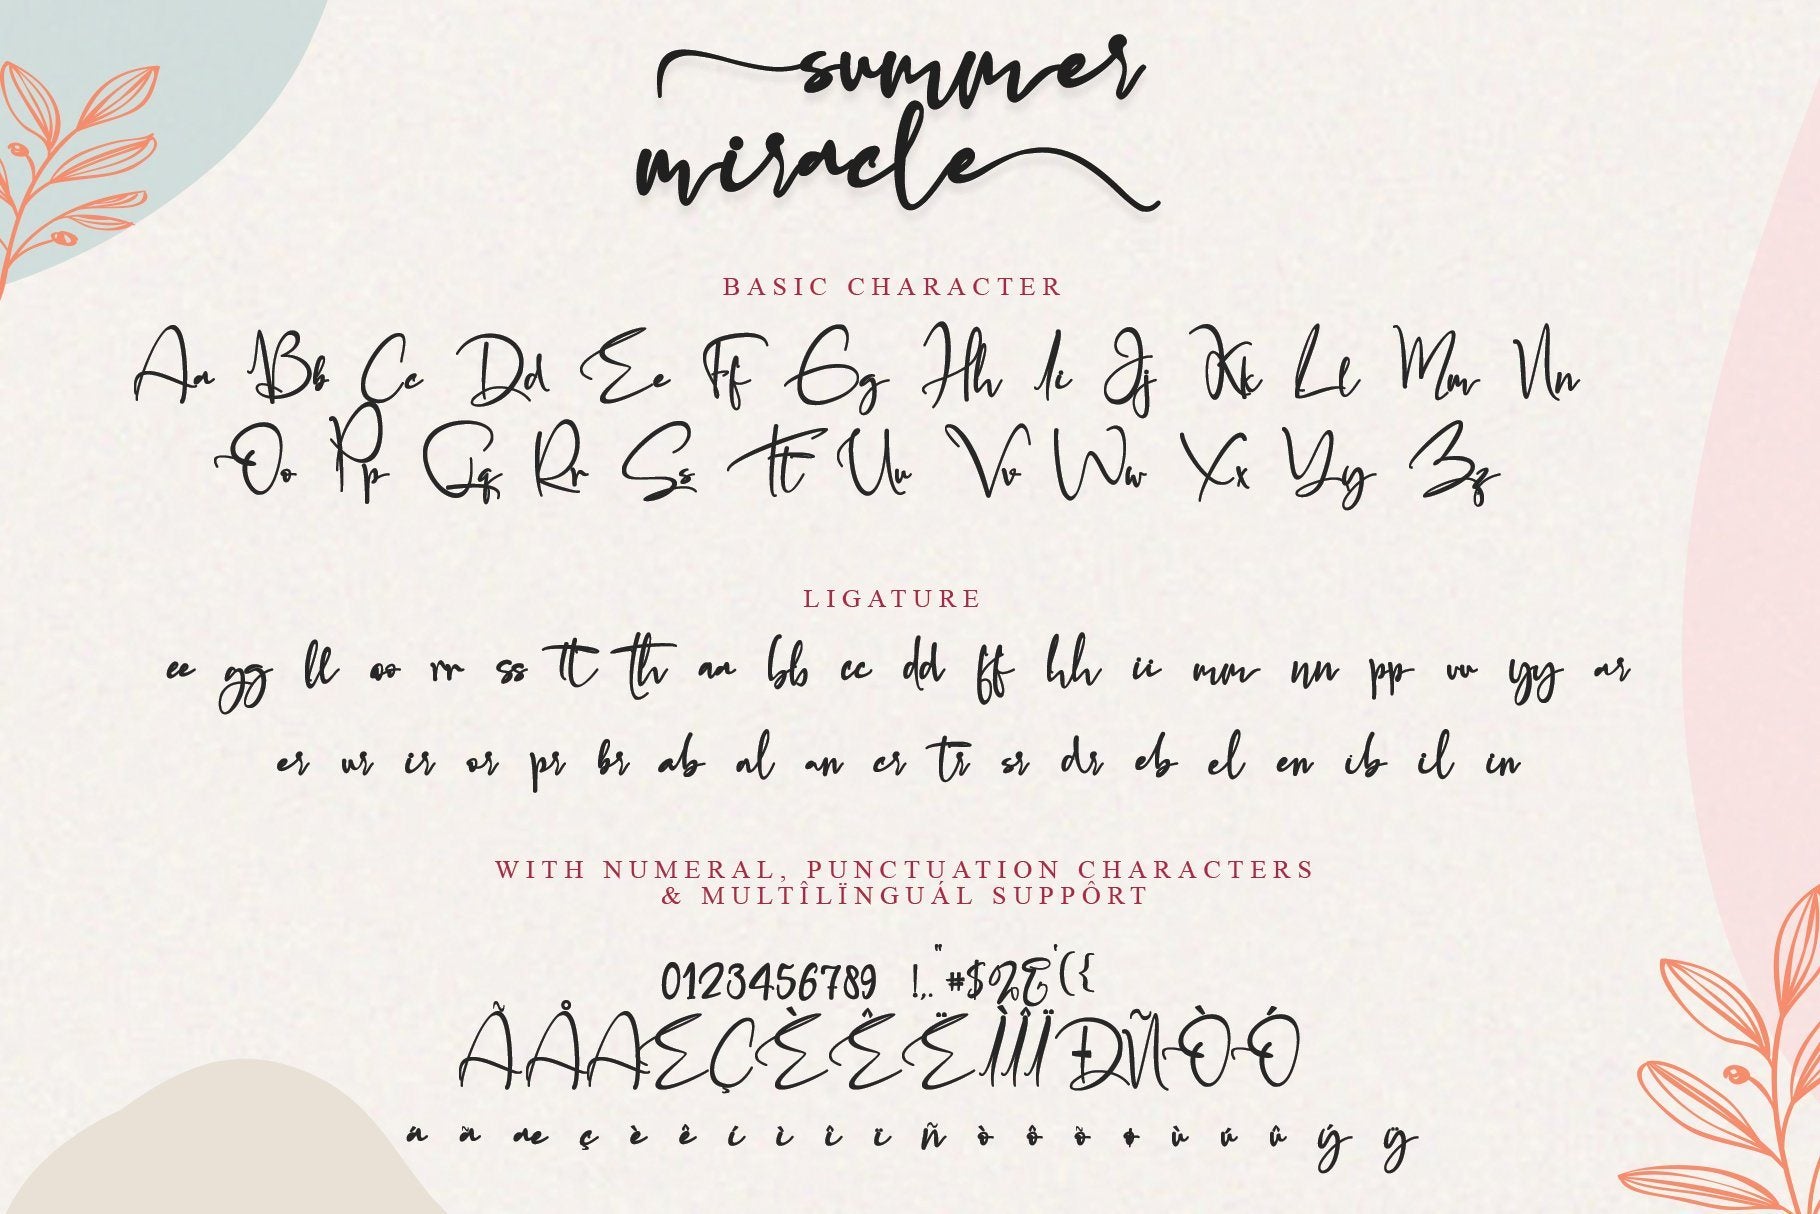 summer
miracle
BASIC CHARACTER
Aa Bb Cc Dd Ee Ff Gg Hh Ii Jj Kk Ll Mm Nn
Oo Pp Qq Rr Ss Tt Uu Vv Ww Xx Yy Zz
LIGATURE
ee gg ll oo rr ss tt th aa bb cc dd ff hh ii mm nn pp uu yy ar
er ur ir or pr br ab al an cr tr sr dr eb el en ib il in
WITH NUMERAL, PUNCTUATION CHARACTERS
& MULTÎLÏNGUÁL SUPPÔRT
0123456789 !,."#$%&'({
ÃÅÆÇÈÊËÌÎÏÐÑÒÓ
á ã æ ç è ê í ì î ï ñ ò ô õ ø ù ú û ý ÿ